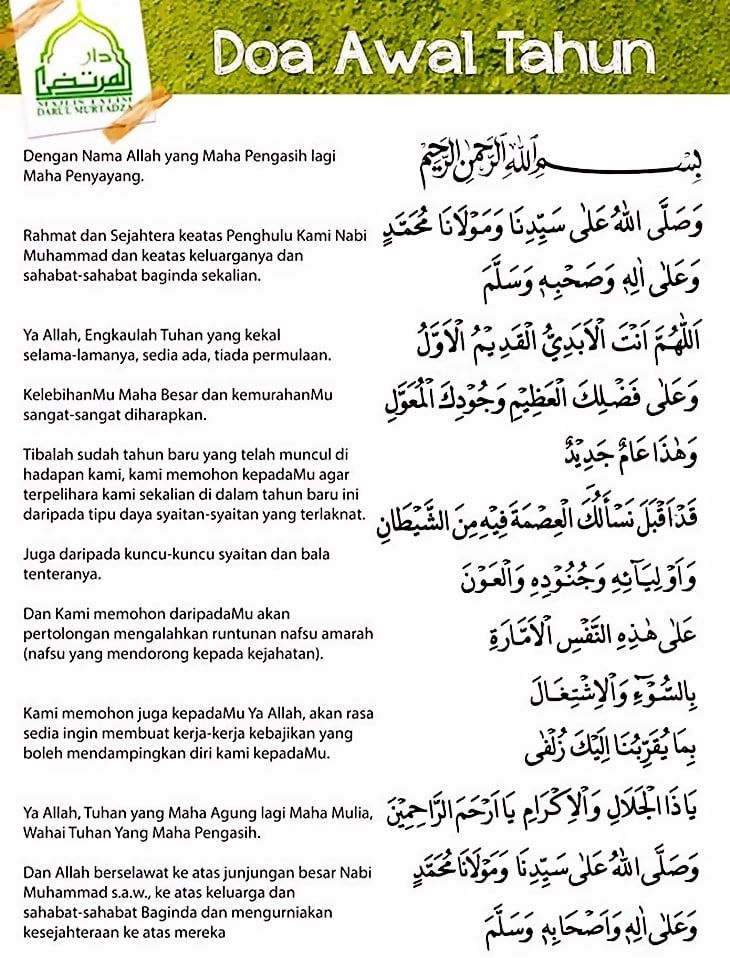 دار
المرتضى
MAJLIS TA'LIM
DARUL MURTADZA
Doa Awal Tahun
Dengan Nama Allah yang Maha Pengasih lagi
Maha Penyayang.
بِسْمِ اللهِ الرَّحْمٰنِ الرَّحِيْمِ
Rahmat dan Sejahtera keatas Penghulu Kami Nabi
Muhammad dan keatas keluarganya dan
sahabat-sahabat baginda sekalian.
وَصَلَّى اللهُ عَلٰى سَيِّدِنَا وَمَوْلَانَا مُحَمَّدٍ
وَعَلٰى اٰلِهٖ وَصَحْبِهٖ وَسَلَّمَ
Ya Allah, Engkaulah Tuhan yang kekal
selama-lamanya, sedia ada, tiada permulaan.
اَللّٰهُمَّ اَنْتَ الْاَبَدِيُّ الْقَدِيْمُ الْاَوَّلُ
KelebihanMu Maha Besar dan kemurahanMu
sangat-sangat diharapkan.
وَعَلٰى فَضْلِكَ الْعَظِيْمِ وَجُوْدِكَ الْمُعَوَّلِ
Tibalah sudah tahun baru yang telah muncul di
hadapan kami, kami memohon kepadaMu agar
terpelihara kami sekalian di dalam tahun baru ini
daripada tipu daya syaitan-syaitan yang terlaknat.
وَهٰذَا عَامٌ جَدِيْدٌ
قَدْ اَقْبَلَ نَسْأَلُكَ الْعِصْمَةَ فِيْهِ مِنَ الشَّيْطَانِ
Juga daripada kuncu-kuncu syaitan dan bala
tenteranya.
وَاَوْلِيَآئِهِ وَجُنُوْدِهِ وَالْعَوْنَ
Dan Kami memohon daripadaMu akan
pertolongan mengalahkan runtunan nafsu amarah
(nafsu yang mendorong kepada kejahatan).
عَلٰى هٰذِهِ النَّفْسِ الْاَمَّارَةِ
بِالسُّوْٓءِ وَالْاِشْتِغَالَ
Kami memohon juga kepadaMu Ya Allah, akan rasa
sedia ingin membuat kerja-kerja kebajikan yang
boleh mendampingkan diri kami kepadaMu.
بِمَا يُقَرِّبُنَا اِلَيْكَ زُلْفٰى
Ya Allah, Tuhan yang Maha Agung lagi Maha Mulia,
Wahai Tuhan Yang Maha Pengasih.
يَاذَا الْجَلَالِ وَالْاِكْرَامِ يَا اَرْحَمَ الرَّاحِمِيْنَ
Dan Allah berselawat ke atas junjungan besar Nabi
Muhammad s.a.w., ke atas keluarga dan
sahabat-sahabat Baginda dan mengurniakan
kesejahteraan ke atas mereka
وَصَلَّى اللهُ عَلٰى سَيِّدِنَا وَمَوْلَانَا مُحَمَّدٍ
وَعَلٰى اٰلِهٖ وَاَصْحَابِهٖ وَسَلَّمَ